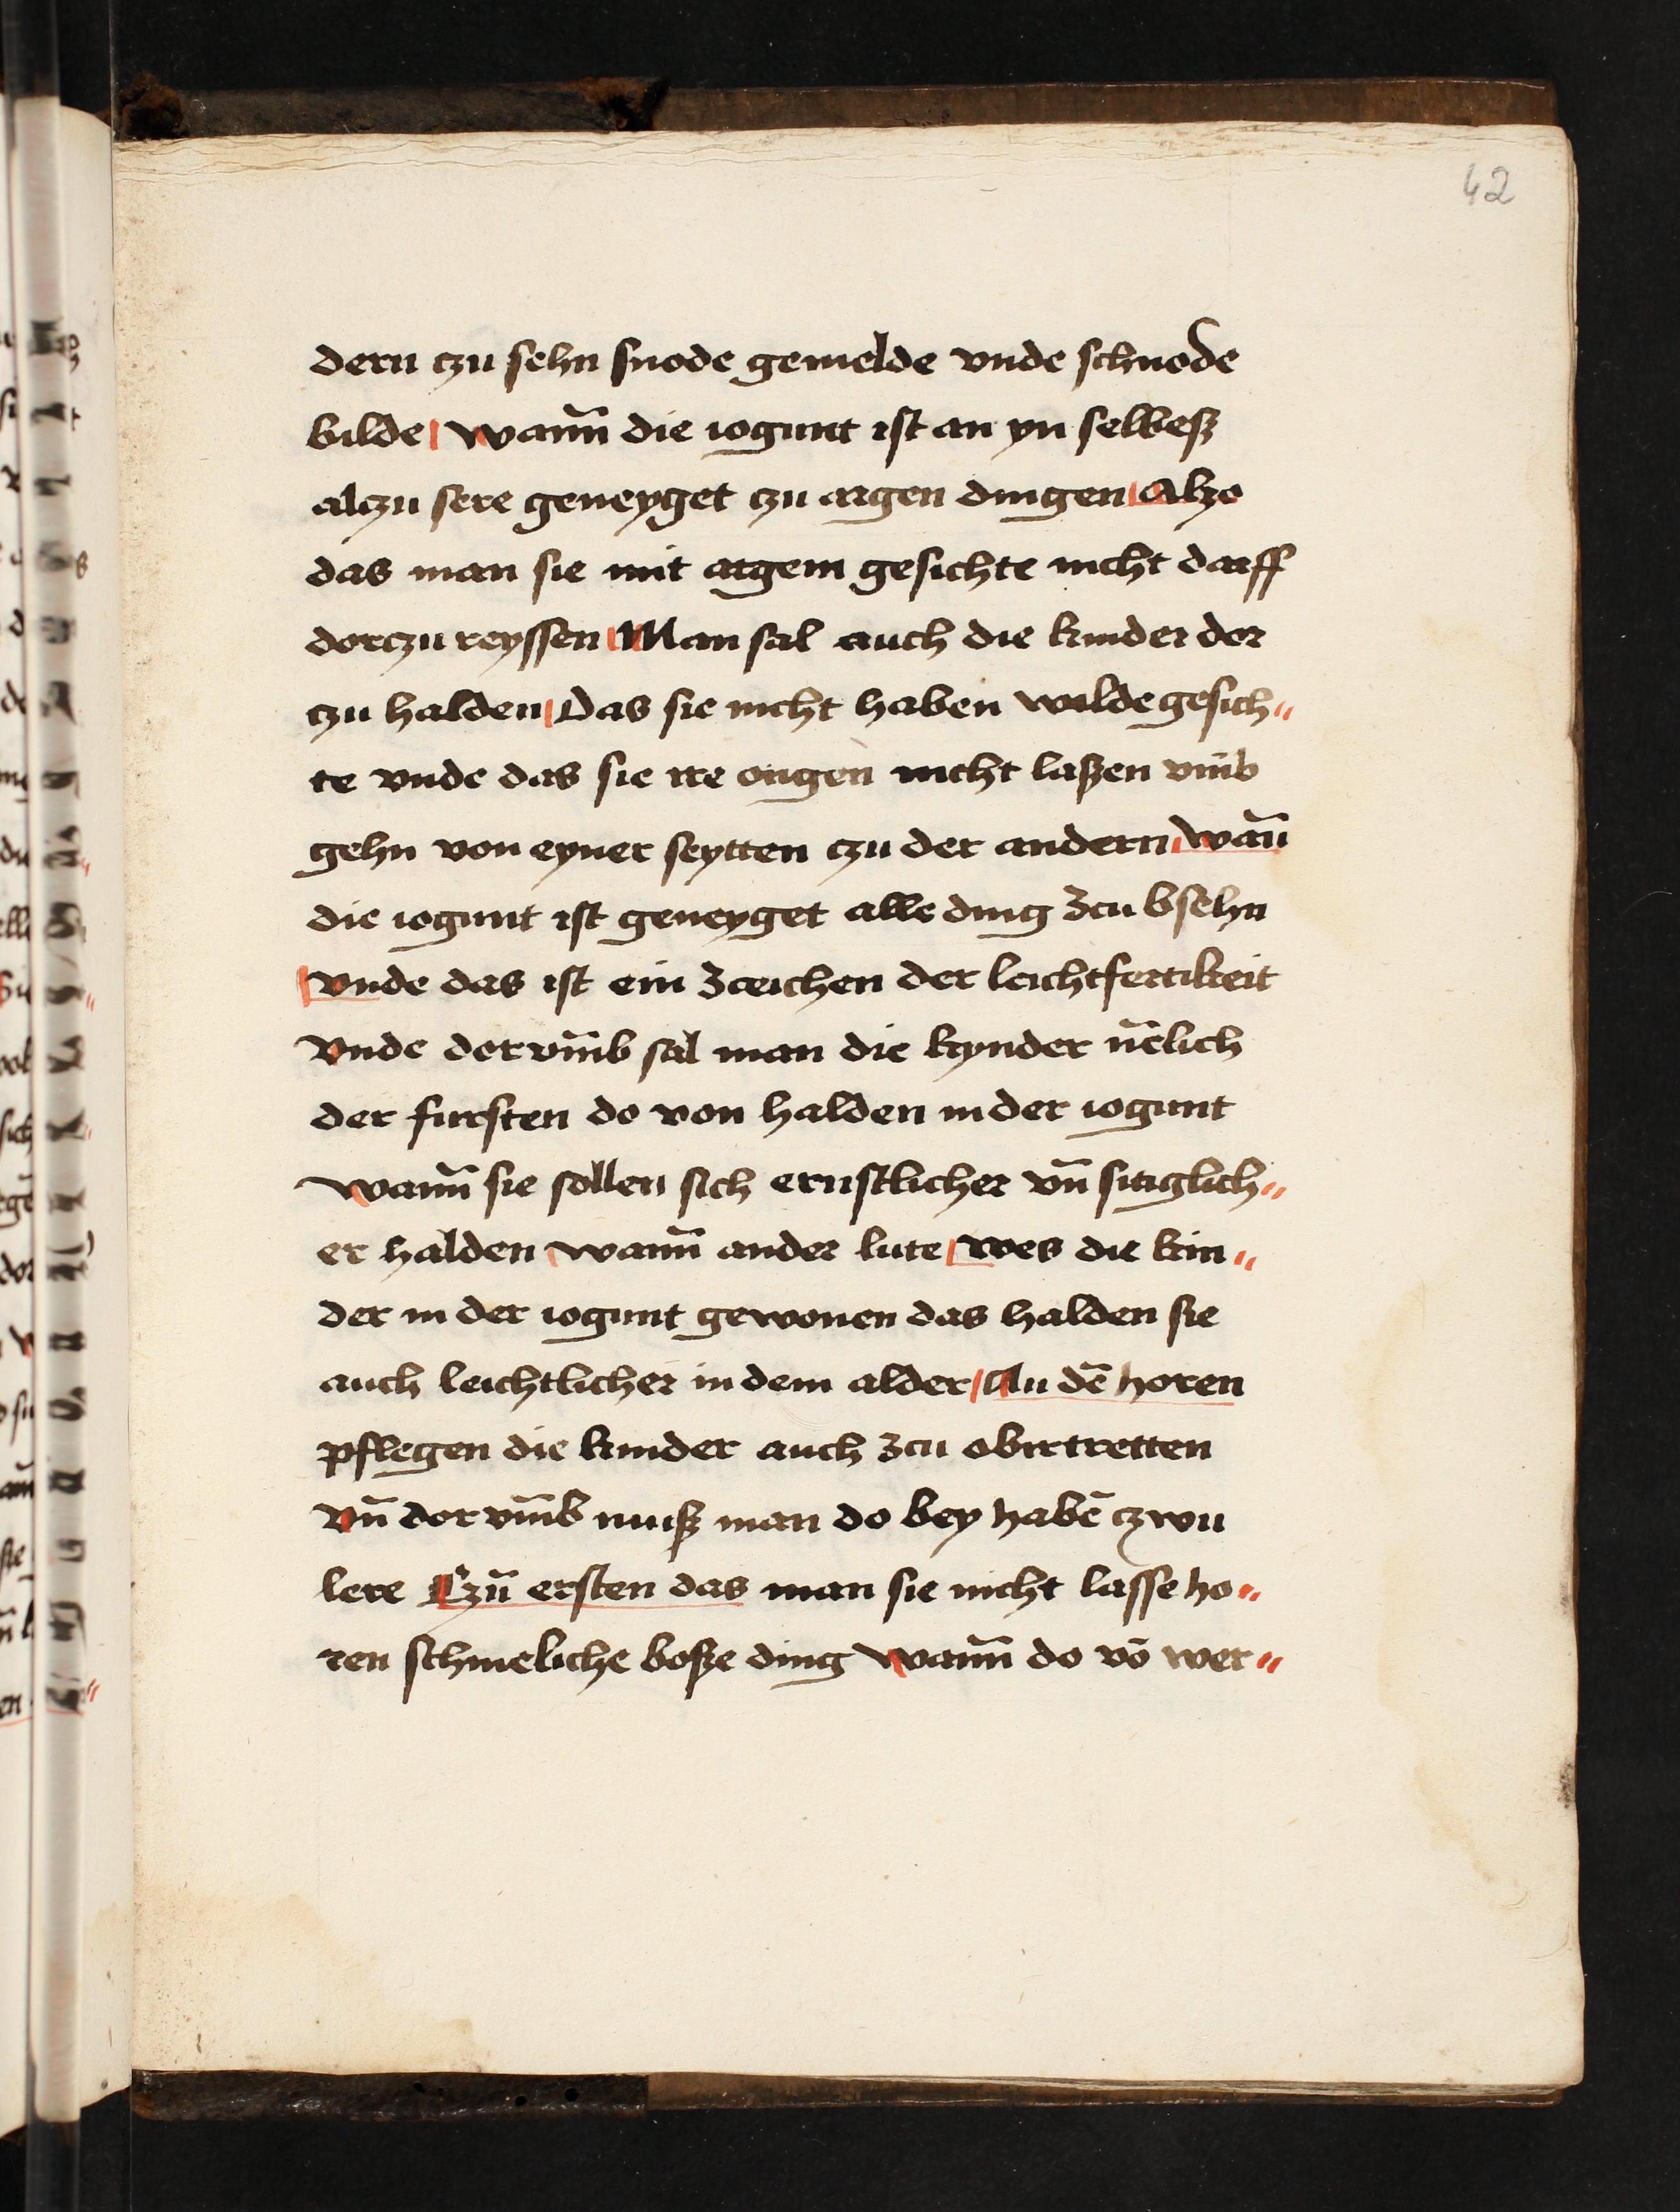 42
dern czu sehn snode gemelde vnde schnode
bilde | wan̄n die iogunt ist an yn selbesz
alczu sere geneyget czu argen dingen | Alzo
das man sie mit argem gesichte nicht darff
dorczu reyssen | Man sal auch die kinder dor
czu halden | Das sie nicht haben wilde gesich„
te vnde das sie ire ougen nicht laszen vm̄b
gehn von eyner seytten czu der andern | wan̄
die iogunt ist geneyget alle ding zcu bsehn
| vnde das ist ein zceichen der leichtfertikeit
Vnde dor vm̄b sal man die kynder nēlich
der fursten do von halden in der iogunt
wan̄n sie sollen sich ernstlicher vn̄ sitiglich„
er halden | wan̄n ander lute | wes die kin„
der in der iogunt gewonen das halden sie
auch leichtlicher in dem alder | An dē horen
pflegen die kinder auch zcu obirtretten
Vn̄ dor vm̄b musz man do bey habē czwu
lere Czū ersten das man sie nicht lasse ho„
ren schmeliche bosze ding wan̄n do vō wer„